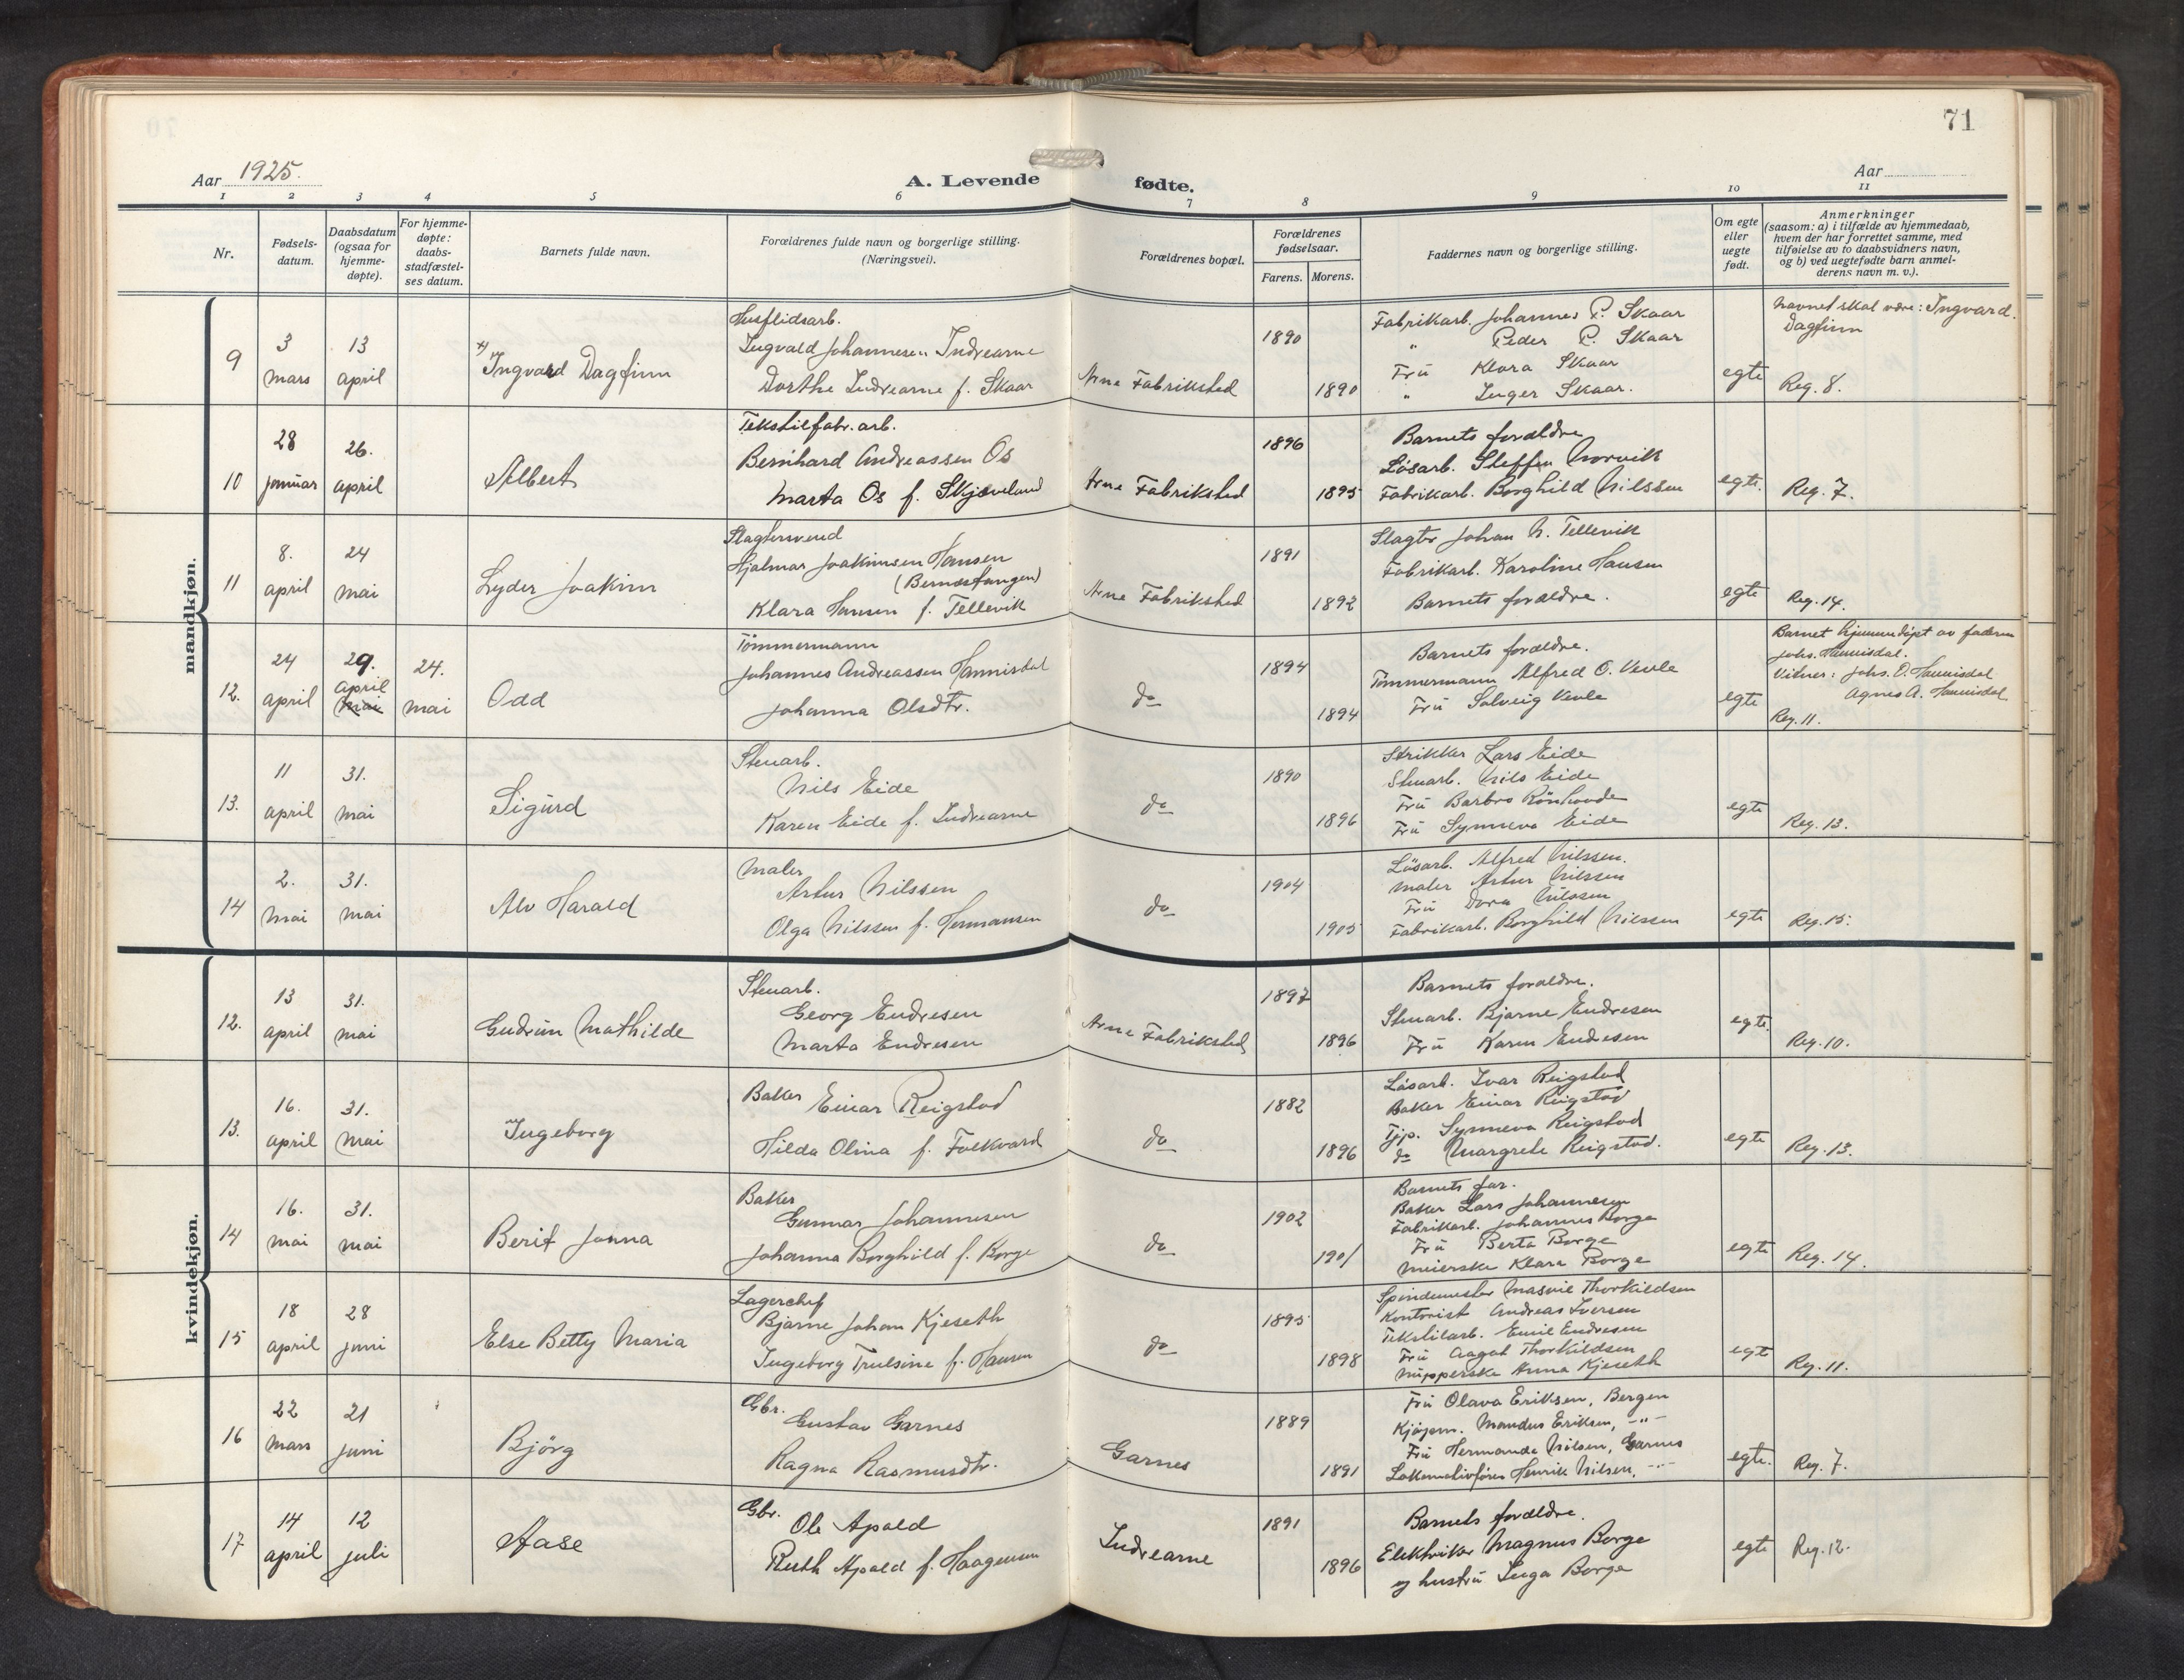 71
Aar 1925.
A. Levende fødte.
Aar
1 2 3 4 5 6 7 8 9 10 11
Nr.
Fødsels-
datum.
Daabsdatum
(ogsaa for
hjemme-
døpte).
For hjemme-
døpte:
daabs-
stadfæstel-
ses datum.
Barnets fulde navn.
Forældrenes fulde navn og borgerlige stilling.
(Næringsvei).
Forældrenes bopæl.
Forældrenes
fødselsaar.
Farens. Morens.
Faddernes navn og borgerlige stilling.
Om egte
eller
uegte
født.
Anmerkninger
(saasom: a) i tilfælde av hjemmedaab,
hvem der har forrettet samme, med
tilføielse av to daabsvidners navn,
og b) ved uegtefødte barn anmel-
derens navn m. v.).
mandkjøn.
9
3
mars
13
april
x) Ingvard Dagfinn
Husflidsarb.
Ingvald Johannesen Indrearne
Dorthe Indrearne f. Skaar
Arne Fabriksted
1890
1890
Fabrikarb. Johannes P. Skaar
" Peder P. Skaar
Frü Klara Skaar
" Inger Skaar.
egte
Navnet skal være: Ingvard
Dagfinn
Reg. 8.
10
28
januar
26.
april
Albert
Tekstilfabr. arb.
Bernhard Andreassen Os
Marta Os f. Skjæveland
Arne Fabriksted
1896
1895
Barnets forældre
Løsarb. Steffen Norvik
Fabrikarb. Borghild Nilssen
egte.
Reg. 7.
11
8.
april
24
mai
Lyder Joakim
Slagtersvend
Hjalmar Joakimsen Hansen
Klara Hansen f. Tellevik
Arne Fabriksted
1891
1892
Slagter Johan N. Tellevik
Fabrikarb. Karoline Hansen
Barnets forældre.
egte
Reg. 14.
12.
24
april
29.
april
mai
24.
mai
Odd
Tömmermann
Johannes Andreassen Hannisdal
Johanna Olsdtr.
do
1894
1894
Barnets forældre.
Tömmermann Alfred O. Venle
Frü Solveig Venle
egte
Barnet hjemmedöpt av faderen
Johs. Hannisdal.
Vitner: Johs. O. Hannisdal
Agnes A. Hannisdal
Reg. 11.
13.
11
april
31.
mai
Sigürd
Stenarb.
Nils Eide
Karen Eide f. Indrearne
do
1890
1896
Strikker Lars Eide
Stenarb. Nils Eide
Frü Barbro Rönhovde
Frü Synneva Eide
egte
Reg. 13.
14
2.
mai
31.
mai
Alv Harald
Maler
Artur Nilssen
Olga Nilssen f. Hermansen
do
1904
1905
Lösarb. Alfred Nilssen.
Maler Artur Nilssen
Frü Dora Nilssen
Fabrikarb. Borghild Nilssen
egte
Reg. 15.
kvindekjøn.
12.
13
april
31.
mai
Gudrün Mathilde
Stenarb.
Georg Endresen
Marta Endresen
Arne Fabriksted
1897
1896
Barnets forældre.
Stenarb. Bjarne Endresen
Frü Karen Endresen
egte.
Reg. 10.
13.
16.
april
31.
mai
Ingeborg
Baker Einar Reigstad
Hilda Olina f. Folkvard
do
1882
1896
Lösarb. Ivar Reigstad
Baker Einar Reigstad
Tjp. Synneva Reigstad
do Margrete Reigstad.
egte
Reg. 13.
14
16.
mai
31.
mai
Berit Jonna
Baker
Gunnar Johannesen
Johanna Borghild f. Borge
do
1902
1901
Barnets far.
Baker Lars Johannesen
Fabrikarb. Johannes Borge
Frü Berta Borge
Meierske Klara Borge
egte
Reg. 14.
15
18
april
28
juni
Else Betty Maria
Lagerchef
Bjarne Johan Kjeseth
Ingeborg Trulsine f. Hansen
do
1895
1898
Spindemester Masvie Thorkildsen
Kontorist Andreas Iversen
Tekstilarb. Emil Endresen
Frü Aagot Thorkildsen
Nüpperske Anna Kjeseth
egte
Reg. 11.
16
22
mars
21
juni
Björg
Gbr.
Gustav Garnes
Ragna Rasmusdtr.
Garnes
1889
1891
Frü Olava Eriksen, Bergen
Kjöpm. Mandus Eriksen, -"-
Frü Hermanda Nilsen, Garnes
Lokomotivförer Henrik Nilsen, -"-
egte.
Reg. 7.
17
14
april
12
juli
Aase
Gbr.
Ole Apald
Ruth Apald f. Haagensen
Indrearne
1891
1896
Barnets forældre.
Elektriker Magnus Borge
og hustrü Inga Borge
egte
Reg. 12.